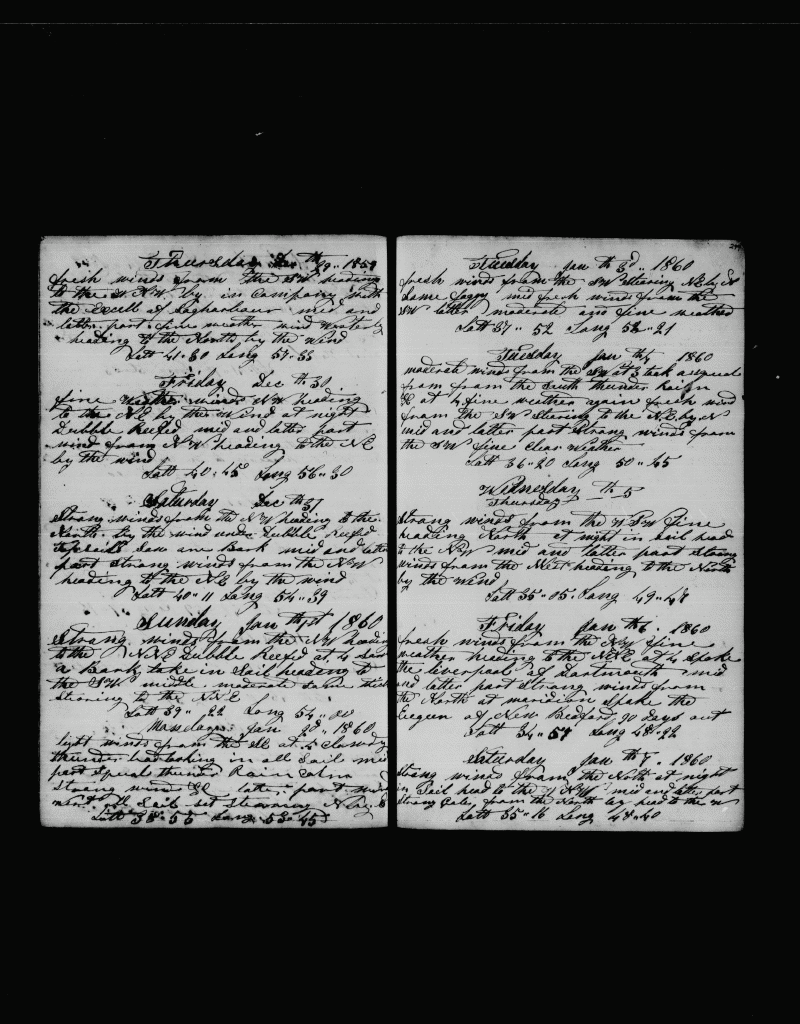 Thursday Dec th 29 .. 1859
fresh winds from the SW heading
to the W N W by in Company with
the Excell of Sagharbour mid and
latter part fine weather wind westerly
heading to the North by the Wind
Latt 41 .. 30 Long 57 .. 33
Friday Dec th 30
fine weather winds NW heading
to the NE by the wind at night
Dubble Reefed mid and latter part
wind from NW heading to the NE
by the wind
Latt 40 .. 45 Long 56 .. 30
Saturday Dec th 31
Strong winds from the NW heading to the
North by the wind under Dubble Reefed
topsails Saw one Bark mid and latter
part Strong winds from the NW
heading to the NE by the wind
Latt 40 .. 11 Long 54 .. 39
Sunday Jan th 1st 1860
Strong winds from the NW heading
to the NNE Dubble Reefed at 4 saw
a Bark take in Sail heading to
the SW middle moderate Same
Stearing to the NNE
Latt 39 .. 22 Long 54 .. 00
Monday Jan 2d .. 1860
light winds from the SE at 5 Clowdy
thunder in all Sail mid
part Rain
Strong wind SE latter part
all Sail set Stearing N by E
Latt 38 .. 53 Long 53 .. 45
Tuesday Jan th 3d .. 1860
fresh winds from the SW Stering NE by N
Some foggy mid fresh winds from the
SW latter moderate and fine weather
Latt 37 .. 52 Long 52 .. 21
Tuesday Jan th 4 1860
moderate winds from the SW at 3 took a squal
from from the South thunder Raign
at 4 fine weather again fresh wind
from the SW Stering to the NE by N
mid and latter part Strong winds from
the SW fine Clear Weather
Latt 36 .. 20 Long 50 .. 45
Widnesday
Thursday th 5
Strong winds from the W S W fine
heading North at night in Sail head
to the NW mid and latter part Strong
winds from the West heading to the North
by the Wend
Latt 35 .. 05 Long 49 .. 47
Friday Jan th 6 . 1860
fresh winds from the NW fine
weather heading to the NNE at 4 Spoke
the liverpool of Dartmouth mid
and latter part Strong winds from
the North at meridian Spoke the
of New Bedford 90 days out
Latt 34 .. 57 Long 48 .. 22
Saturday Jan th 7 . 1860
Strong winds from the North at night
in Sail head to the W N W mid and latter part
Strong Gale, from the North by head to the W
Latt 35 .. 16 Long 48 .. 40